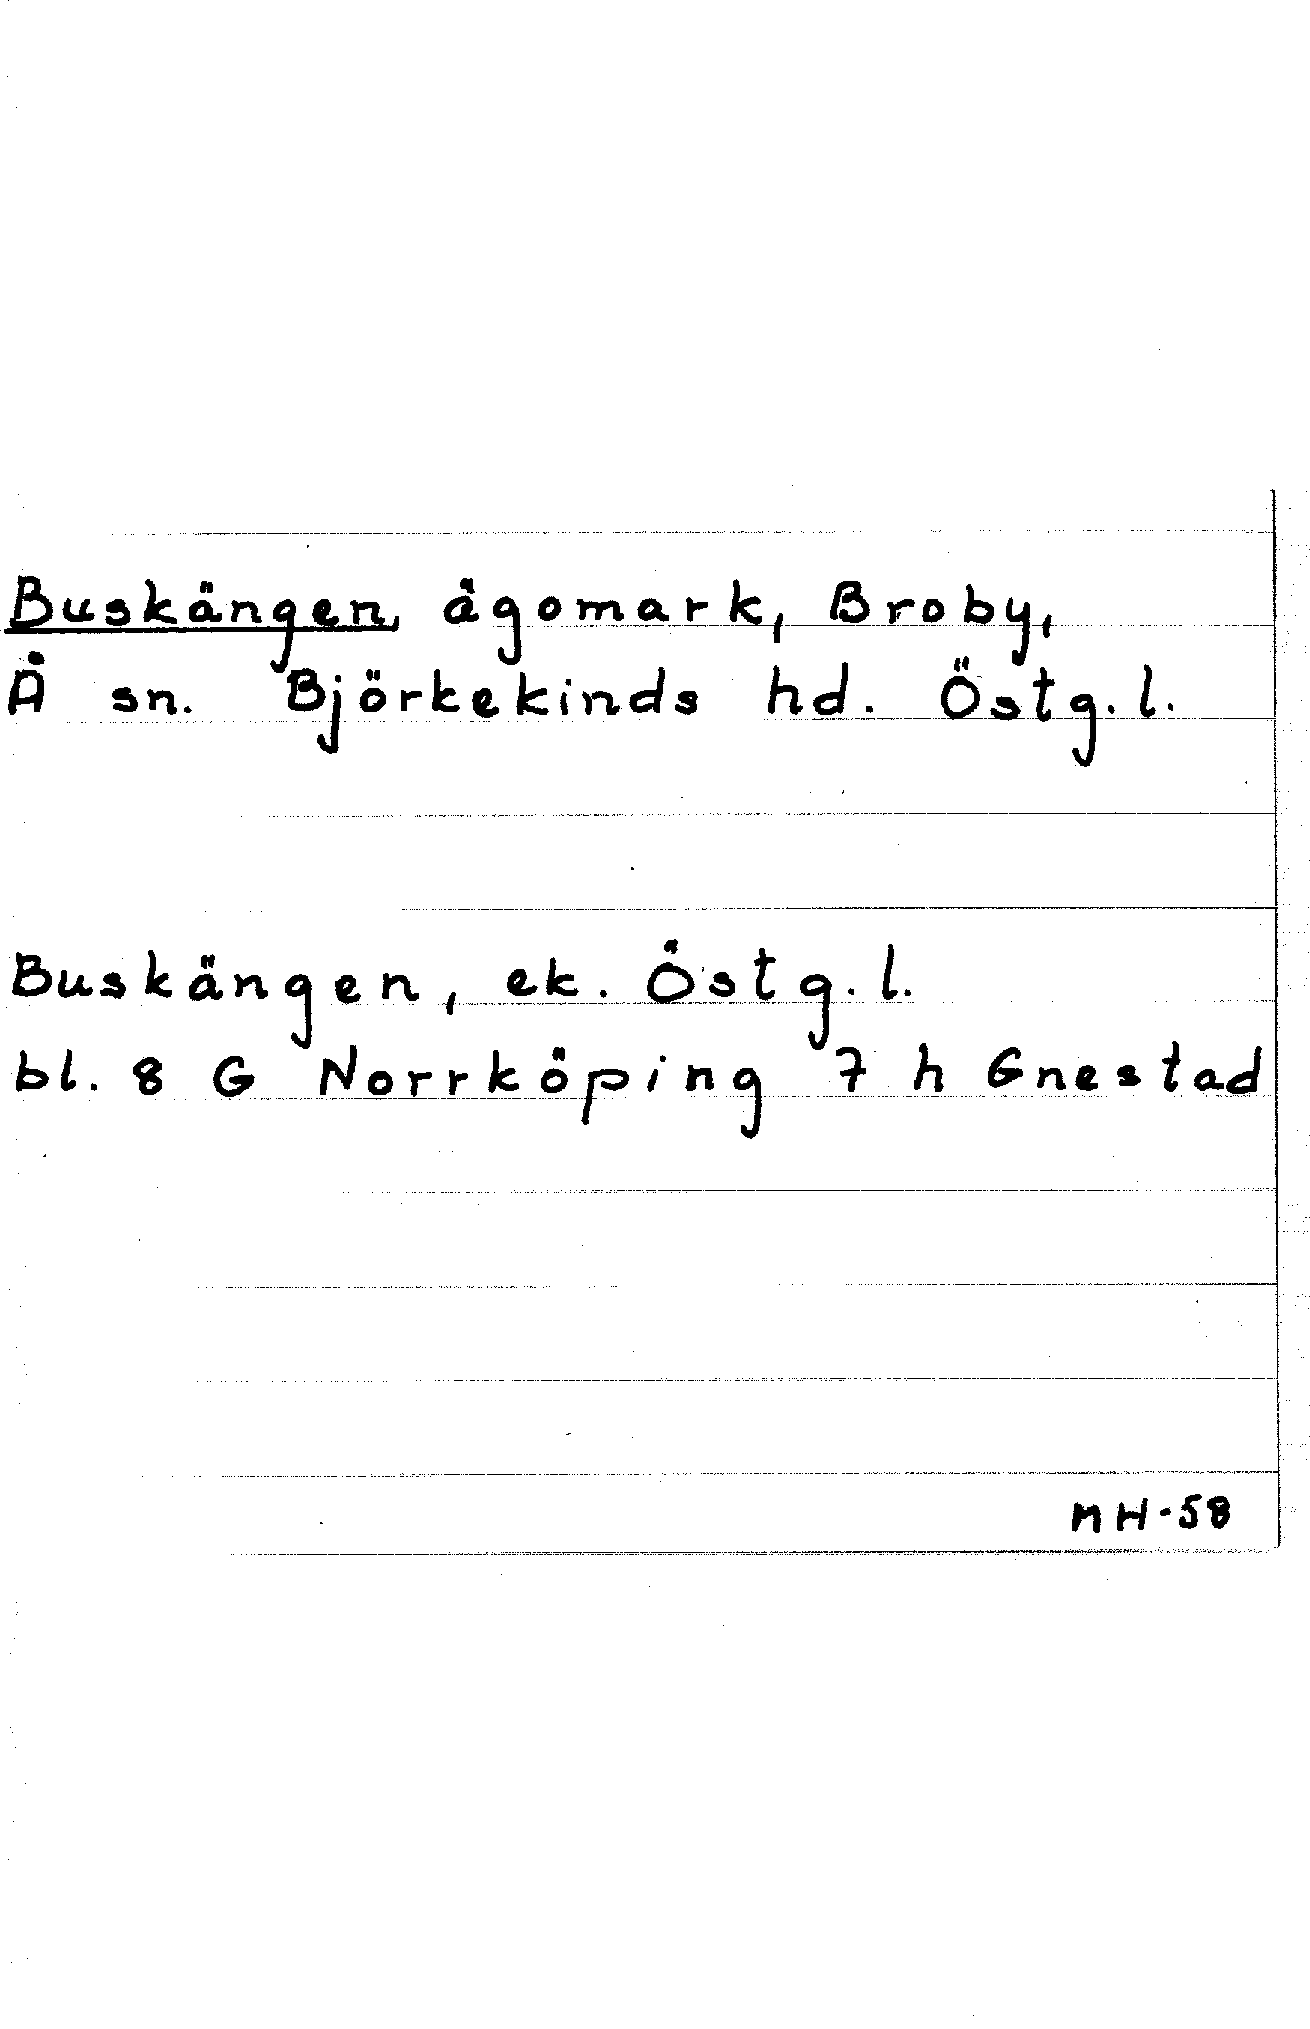 Buskängen, ägomark, Broby,
Å sn. Björkekinds hd. Östg.l.
Buskängen, ek. Östg.l.
bl. 8 G Norrköping 7 h Gnestad
MH-58